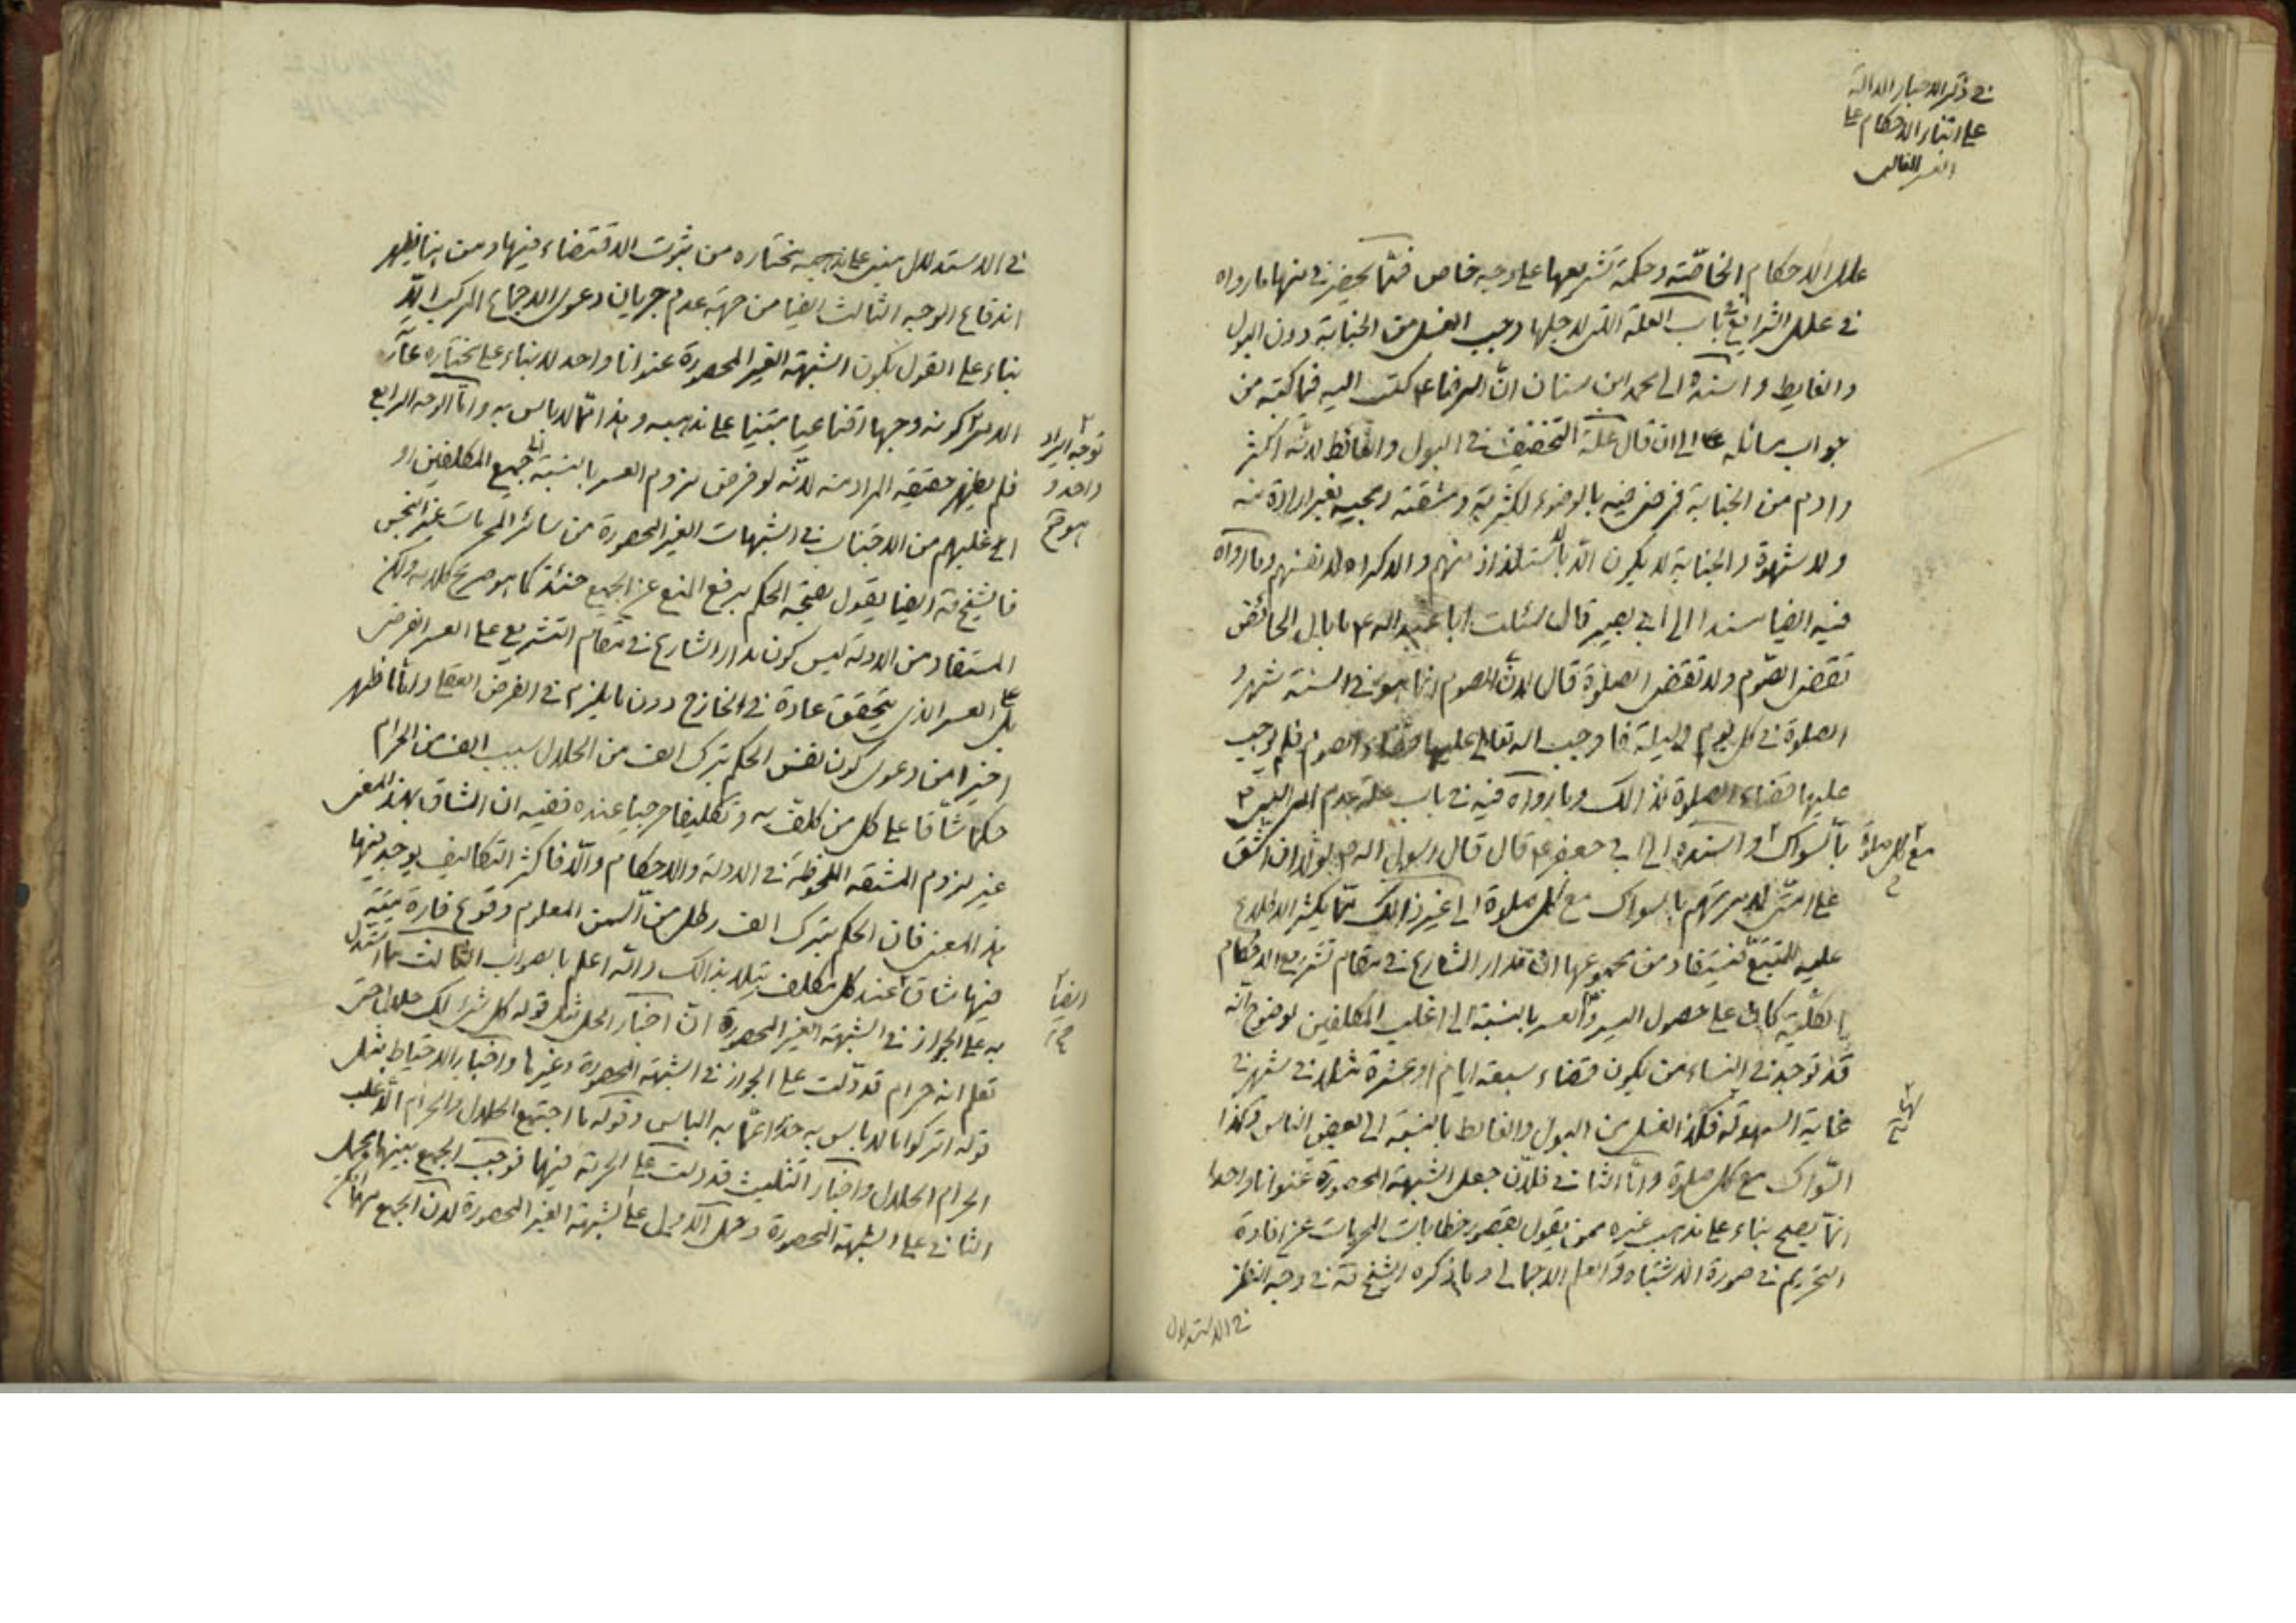 في ذكر الاخبار الدالة
على ابتناء الاحكام على
العسر الغالب
علل الاحكام الخاصّة وحكمة تشريعها على وجه خاص فممّا يحضرني منها ما رواه
في علل الشرايع في باب العلة التي لاجلها وجب الغسل من الجنابة دون البول
والغايط واسنده الى محمد ابن سنان انّ الرضا ع كتب اليه فيما كتبه من
جواب مسائله الى ان قال علّة التخفيف في البول والغائط لانّه اكثر
وادوم من الجنابة فرضى فيه بالوضوء لكثرته ومشقته ومجيئه بغير ارادة منه
ولا شهوة والجنابة لا يكون الّا بالاستلذاذ منهم والاكراه لانفسهم وما رواه
فيه ايضا مسندا الى ابي بصير قال سئلت ابا عبد الله ع ما بال الحائض
تقضى الصّوم ولا تقضى الصلوة قال لانّ الصوم انّما هو في السنة شهر و
الصلوة في كل يوم وليلة فاوجب الله تعالى عليها قضاء الصوم فلم يوجب
عليها قضاء الصلوة لذالك وما رواه فيه في باب علة عدم امر النبي ص
بالسّواك واسنده الى ابي جعفر ع قال قال رسول الله ص لولا ان اشقّ
مع كل صلوة
على امّتى لامرتهم بالسواك مع كل صلوة الى غير ذالك ممّا يكثر الاطلاع
عليه للمتتبّع فيستفاد من مجموعها ان مدار الشارع في مقام تشريع الاحكام
الكليّة كان على حصول اليسر والعسر بالنسبة الى اغلب المكلفين لوضوح انّه
قد توجد في النساء من يكون قضاء سبعة ايام او عشرة مثلا في شهر في
غاية السهولة فكذا الغسل من البول والغايط بالنسبة الى بعض الناس وكذا
السّواك مع كل صلوة وامّا الثاني فلانّ جعل الشبهة المحصورة عنوانا واحدا
انّما يصح بناء على مذهب غيره ممن يقول بقصور خطابات المحرمات عن افادة
التحريم في صورة الاشتباه والعلم الاجمالي وما ذكره الشيخ قدّه في وجه النظر
في الاستدلال
في الاستدلال مبنى على مذهبه ومختاره من ثبوت الاقتضاء فيها ومن هنا يظهر
اندفاع الوجه الثالث ايضا من جهة عدم جريان دعوى الاجماع المركب الّا
بناء على القول بكون الشبهة الغير المحصورة عنوانا واحد لا بناء على مختاره
الامر كونه وجها اقناعيا مبتنيا على مذهبه وهذا ممّا لا باس به وامّا الوجه الرابع
توجه ايراد
واحد و
هو
فلم يظهر حقيقة المراد منه لانّه لو فرض لزوم العسر بالنسبة الى جميع المكلفين او
اغلبهم من الاجتناب في الشبهات الغير المحصورة من سائر المحرمات غير النجس
فالشيخ قدّه ايضا يقول بصحّة الحكم برفع المنع عن الجميع حينئذ كما هو صريح كلامه ولكن
المستفاد من الادلة ليس كون مدار الشارع في مقام التشريع على العسر الفرضى
بل على العسر الذي يتحقق عادة في الخارج دون ما يلزم في الفرض العقلى وامّا ما ظهر
اخيرا من دعوى كون نفس الحكم بترك الف من الحلال بسبب الف من الحرام
حكما شاقا على كل من كلّف به وتكليفا حرجيا عنده ففيه ان المشاق بهذا المعنى
غير لزوم المشقة الملحوظة في الادلة والاحكام والّا فاكثر التكاليف يوجد فيها
هذا المعنى فان الحكم بترك الف رطل من السّمن المعلوم وقوع فارة ميّتة
فيها شاق عند كل مكلف يبتلى بذالك والله اعلم بالصواب الثالث ممّا استدل
به على الجواز في الشبهة الغير المحصورة انّ اخبار الحل مثل قوله كل شيء لك حلال حتى
ايضا
تعلم انه حرام قد دلّت على الجواز في الشبهة المحصورة وغيرها واخبار الاحتياط مثل
قوله اتركوا ما لا باس به حذرا عمّا به الباس وقوله ما اجتمع الحلال والحرام الّا غلب
الحرام الحلال واخبار التثليث قد دلّت على الحرمة فيها فوجب الجمع بينها بحمل
الثاني على الشبهة المحصورة وحمل الاول على الشبهة الغير المحصورة لانّ الجمع مهما امكن